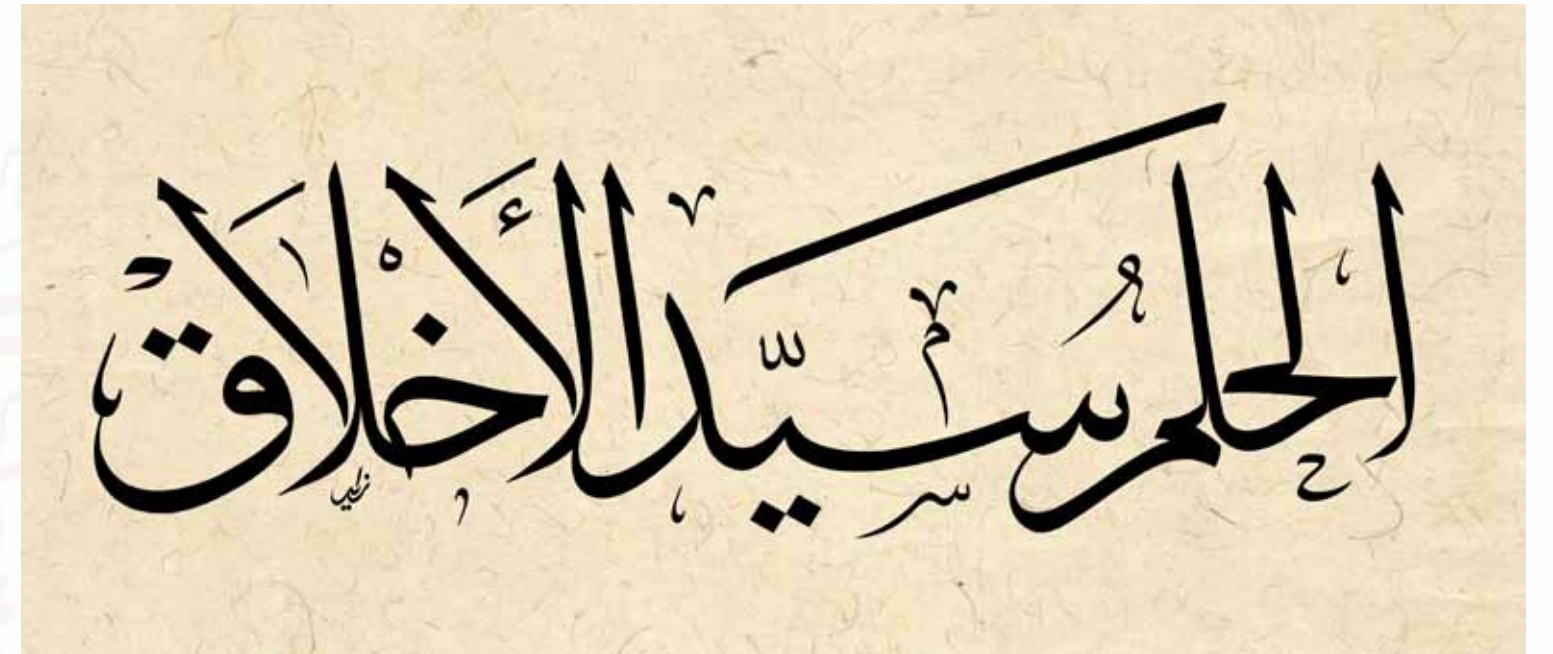 الحلم سيّد الأخلاق